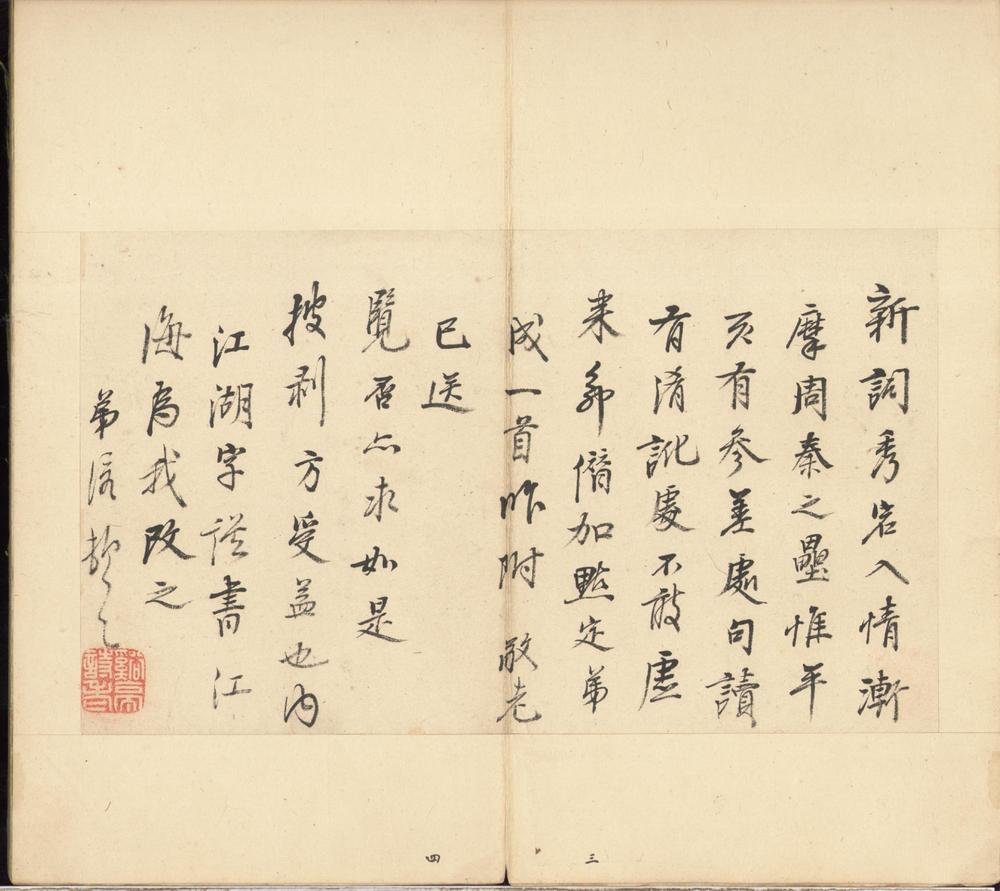 新詞秀宕入情漸
摩周秦之壘惟平
仄有參差處句讀
有淆訛處不敢虛
来命僭加點定弟
成一首昨附 敬老
已送
覽否亦求如是
披剥方受益也内
江湖字誤書江
海為我改之
弟
三
四